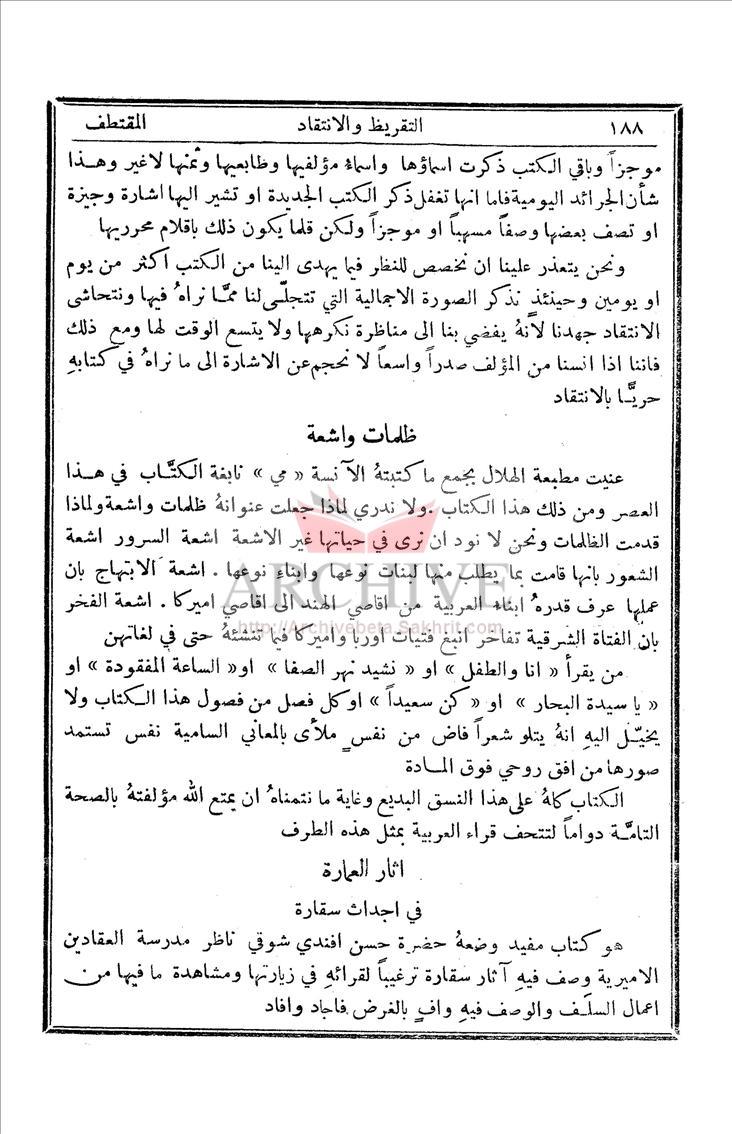 ١٨٨ التقريظ والانتقاد المقتطف
موجزاً وباقي الكتب ذكرت اسماؤها واسماءُ مؤلفيها وطابعيها وثمنها لاغير وهذا
شأن الجرائد اليومية فاما انها تغفل ذكر الكتب الجديدة او تشير اليها اشارة وجيزة
او تصف بعضها وصفاً مسهباً او موجزاً ولكن قلما يكون ذلك باقلام محرريها
ونحن يتعذر علينا ان نخصص للنظر فيما يهدى الينا من الكتب اكثر من يوم
او يومين وحينئذٍ نذكر الصورة الاجمالية التي تتجلّى لنا ممَّا نراهُ فيها ونتحاشى
الانتقاد جهدنا لأنهُ يفضي بنا الى مناظرة نكرهها ولا يتسع الوقت لها ومع ذلك
فاننا اذا انسنا من المؤلف صدراً واسعاً لا نحجم عن الاشارة الى ما نراهُ في كتابهِ
حريًّا بالانتقاد
ظلمات واشعة
عنيت مطبعة الهلال بجمع ما كتبتهُ الآنسة « مي » نابغة الكتَّاب في هذا
العصر ومن ذلك هذا الكتاب . ولا ندري لماذا جعلت عنوانهُ ظلمات واشعة ولماذا
قدمت الظلمات ونحن لا نود ان نرى في حياتها غير الاشعة اشعة السرور اشعة
الشعور بانها قامت بما يطلب منها لبنات نوعها وابناءِ نوعها . اشعة الابتهاج بان
عملها عرف قدرهُ ابناء العربية من اقاصي الهند الى اقاصي اميركا . اشعة الفخر
بان الفتاة الشرقية تفاخر انبغ فتيات اوربا واميركا فيما تنشئهُ حتى في لغاتهن
من يقرأ « انا والطفل » او « نشيد نهر الصفا » او « الساعة المفقودة » او
« يا سيدة البحار » او « كن سعيداً » او كل فصل من فصول هذا الكتاب ولا
يخيَّل اليهِ انهُ يتلو شعراً فاض من نفسٍ ملأى بالمعاني السامية نفس تستمد
صورها من افق روحي فوق المادة
الكتاب كلهُ على هذا النسق البديع وغاية ما نتمناهُ ان يمتع الله مؤلفتهُ بالصحة
التامَّة دواماً لتتحف قراء العربية بمثل هذه الطرف
اثار العمارة
في اجداث سقارة
هو كتاب مفيد وضعهُ حضرة حسن افندي شوقي ناظر مدرسة العقادين
الاميرية وصف فيهِ آثار سقارة ترغيباً لقرائهِ في زيارتها ومشاهدة ما فيها من
اعمال السلف والوصف فيهِ وافٍ بالغرض فاجاد وافاد
ARCHIVE
http://Archivebeta.Sakhrit.com